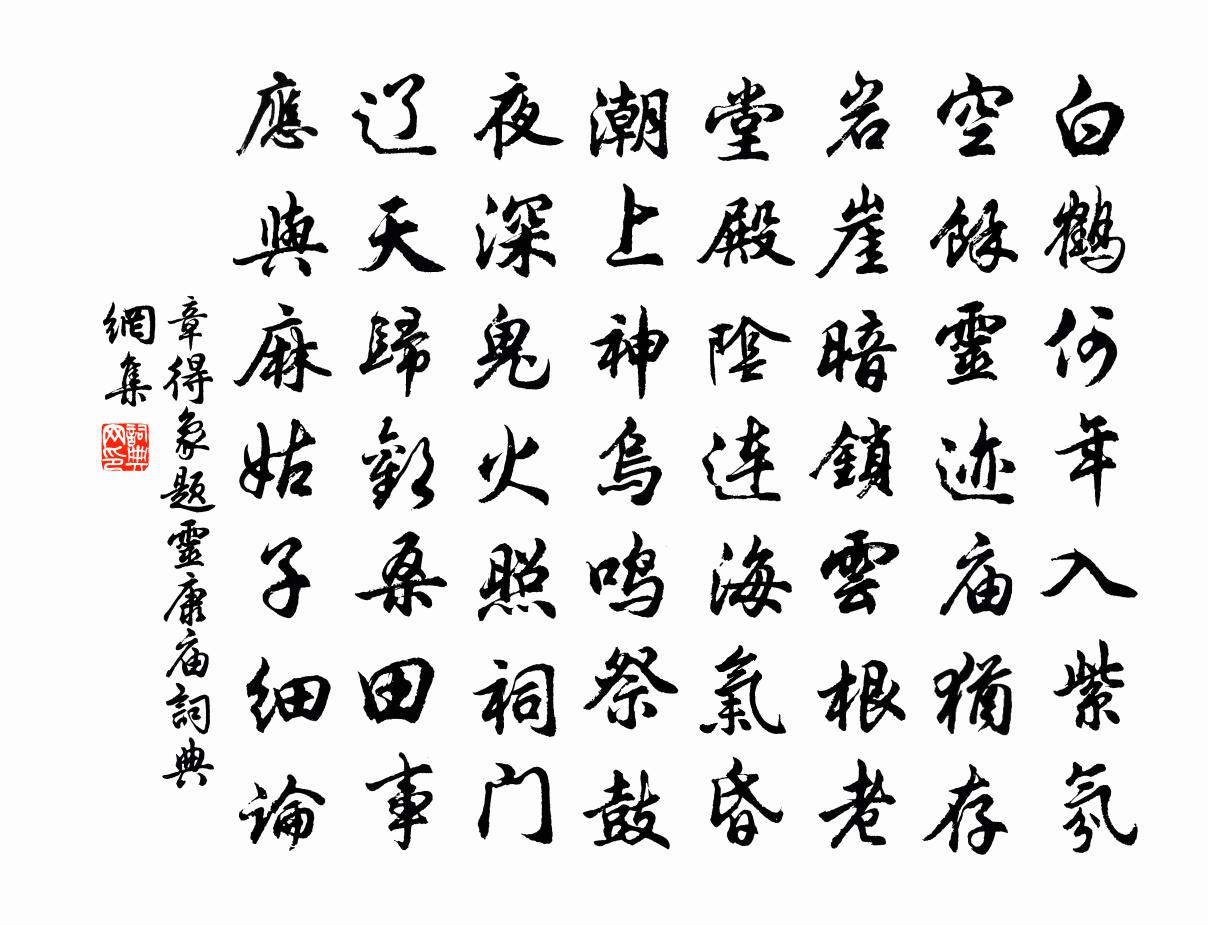 白鶴何年入紫氛
空餘靈迹庙猶存
岩崖暗鎖雲根老
堂殿陰連海氣昏
潮上神烏鳴祭鼓
夜深鬼火照祠门
辽天歸歎桑田事
應與麻姑子細論
章得象题靈康庙詞典
網集
詞典
网印